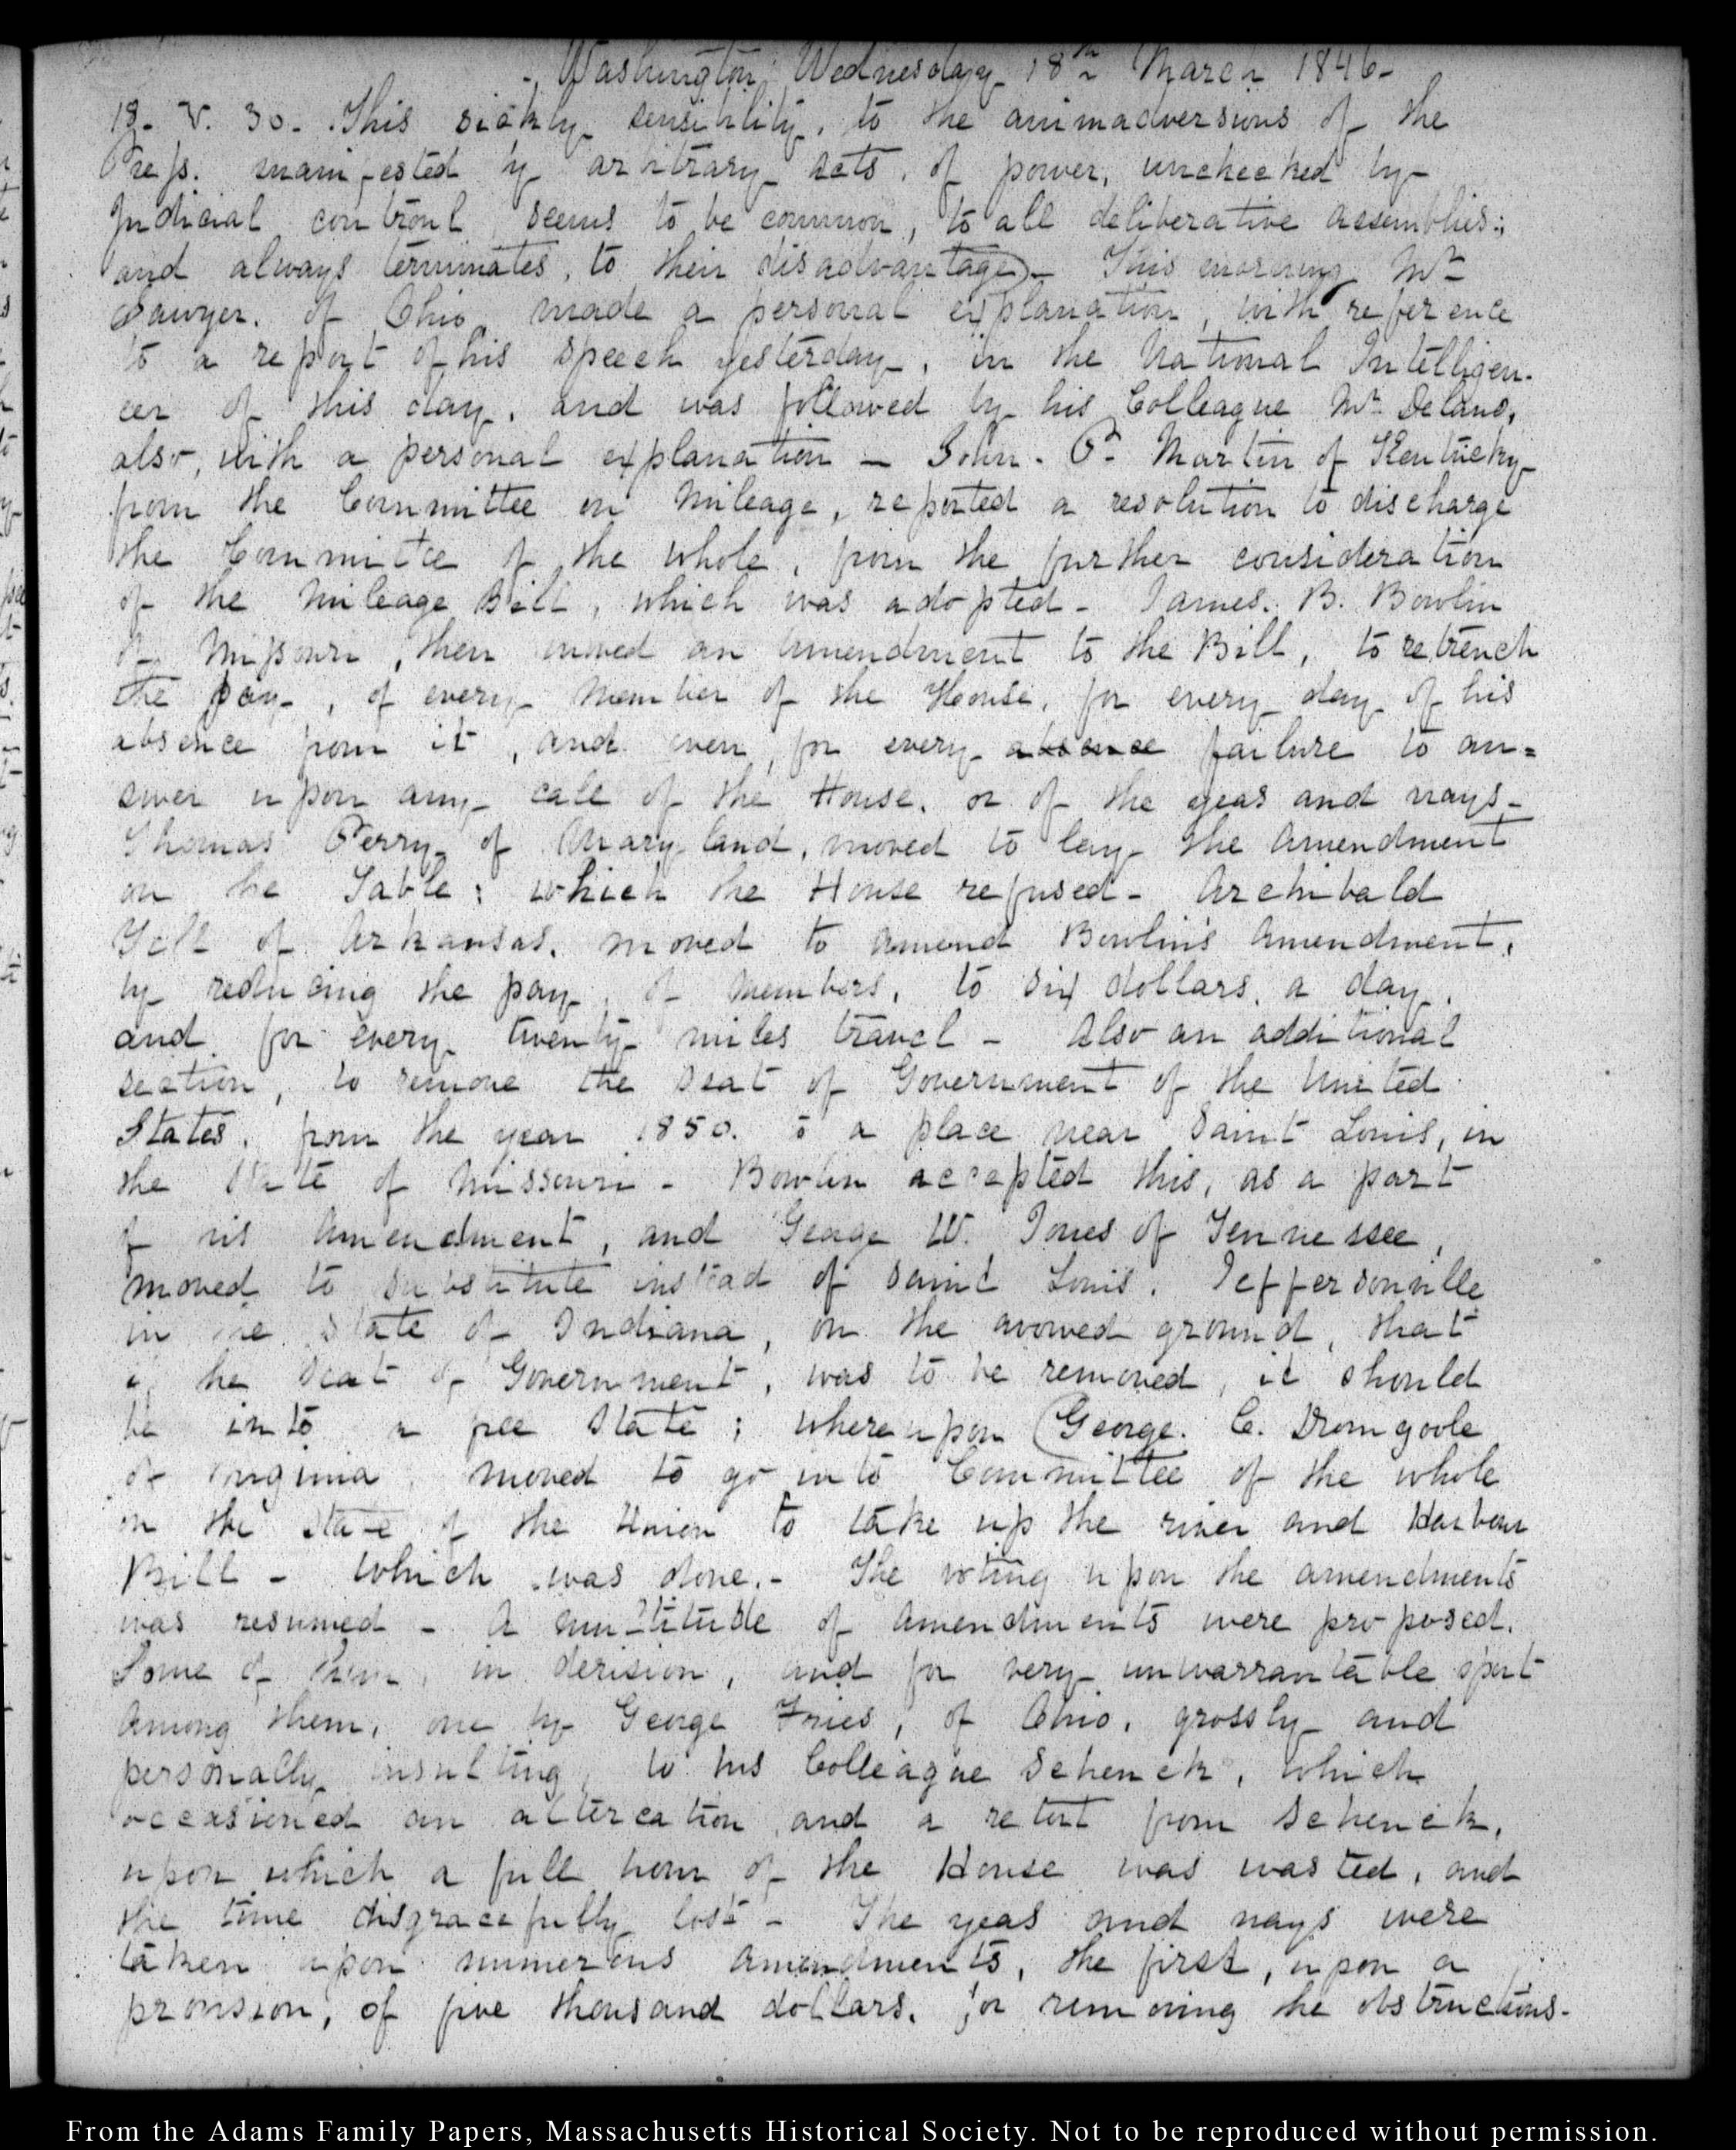 Washington, Wednesday 18th March 1846-
18. V. 30. This sickly sensibility, to the animadversions of the
Press. manifested by arbitrary acts, of power, unchecked by
Judicial controul, seems to be common, to all deliberative assemblies;
and always terminates, to their disadvantage- This morning Mr
Sawyer. of Ohio, made a personal explanation, with reference
to a report of his speech yesterday, in the National Intelligen-
cer of this day, and was followed by his Colleague Mr Delano,
also, with a personal explanation - John. P. Martin of Kentucky
from the Committee on Mileage, reported a resolution to discharge
the Committee of the whole, from the further consideration
of the Mileage Bill, which was adopted- James. B. Bowlin
of Missouri, then moved an amendment to the Bill, to retrench
the pay, of every Member of the House, for every day of his
absence from it, and even, for every absence failure to an=
swer upon any call of the House, or of the yeas and nays-
Thomas Perry of Maryland, moved to lay the Amendment
on the Table: which the House refused- Archibald
Yell of Arkansas, moved to amend Bowlin's Amendment,
by reducing the pay, of Members, to six dollars, a day,
and for every twenty miles travel - Also an additional
section, to remove the Seat of Government of the United
States, from the year 1850. to a place near Saint Louis, in
the State of Missouri - Bowlin accepted this, as a part
of his Amendment, and George W. Jones of Tennessee,
moved to substitute instead of Saint Louis, Jeffersonville
in the State of Indiana, on the avowed ground, that
if the Seat of Government, was to be removed, it should
be into a free State; whereupon George. C. Dromgoole
of Virginia, moved to go into Committee of the whole
on the state of the Union to take up the river and Harbour
Bill - which was done.- The voting upon the amendments
was resumed - A multitude of Amendments were proposed.
Some of them, in derision, and for very unwarrantable sport
Among them, one by George Fries, of Ohio, grossly and
personally insulting, to his Colleague Schenck, which
occasioned an altercation and a retort from Schenck,
upon which a full hour of the House was wasted, and
the time disgracefully lost - The yeas and nays were
taken upon numerous Amendments, the first, upon a
provision, of five thousand dollars, for removing the obstructions-
From the Adams Family Papers, Massachusetts Historical Society. Not to be reproduced without permission.